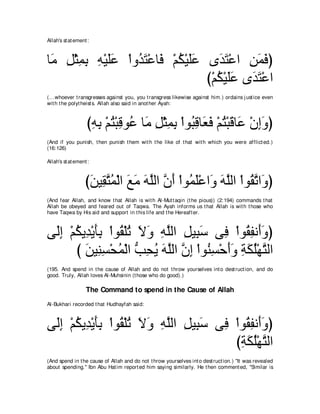 Allah's statement:
﴿فَمَنِ اعْتَدَى عَلَيْكُمْ فَاعْتَدُواْ عَلَيْهِ بِمِثْلِ مَا
اعْتَدَى عَلَيْكُمْ﴾
(…whoever transgresses against you, you transgress likewise against him.) ordains justice even
with the polytheists. Allah also said in another Ayah:
﴿وَإِنْ عَاقَبْتُمْ فَعَاقِبُواْ بِمِثْلِ مَا عُوقِبْتُمْ بِهِ﴾
(And if you punish, then punish them with the like of that with which you were afflicted.)
(16:126)
Allah's statement:
﴿وَاتَّقُواْ اللَّهَ وَاعْلَمُواْ أَنَّ اللَّهَ مَعَ الْمُتَّقِينَ﴾
(And fear Allah, and know that Allah is with Al-Muttaqin (the pious)) (2:194) commands that
Allah be obeyed and feared out of Taqwa. The Ayah informs us that Allah is with those who
have Taqwa by His aid and support in this life and the Hereafter.
﴿وَأَنفِقُواْ فِى سَبِيلِ اللَّهِ وَلاَ تُلْقُواْ بِأَيْدِيكُمْ إِلَى
التَّهْلُكَةِ وَأَحْسِنُواْ إِنَّ اللَّهَ يُحِبُّ الْمُحْسِنِينَ ﴾
(195. And spend in the cause of Allah and do not throw yourselves into destruction, and do
good. Truly, Allah loves Al-Muhsinin (those who do good).)
The Command to spend in the Cause of Allah
Al-Bukhari recorded that Hudhayfah said:
﴿وَأَنفِقُواْ فِى سَبِيلِ اللَّهِ وَلاَ تُلْقُواْ بِأَيْدِيكُمْ إِلَى
التَّهْلُكَةِ﴾
(And spend in the cause of Allah and do not throw yourselves into destruction.) "It was revealed
about spending." Ibn Abu Hatim reported him saying similarly. He then commented, "Similar is